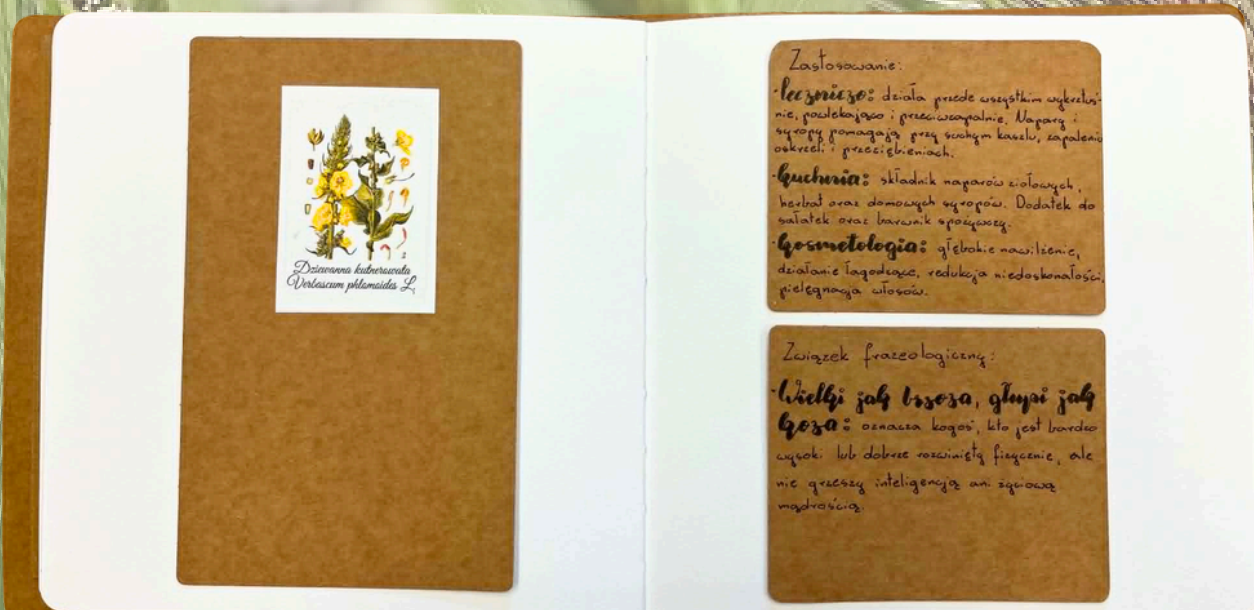 Dziewanna kutnerowata
Verbascum phlomoides L.
Zastosowanie:
·leczniczo: działa przede wszystkim wykrztuś-
nie, powlekająco i przeciwzapalnie. Napary i
syropy pomagają przy suchym kaszlu, zapaleniu
oskrzeli i przeziębieniach.
·kuchnia: składnik naparów ziołowych,
herbat oraz domowych syropów. Dodatek do
sałatek oraz barwnik spożywczy.
·kosmetologia: głębokie nawilżenie,
działanie łagodzące, redukcja niedoskonałości,
pielęgnacja włosów.
Związek frazeologiczny:
·Wielki jak brzoza, głupi jak
koza: oznacza kogoś, kto jest bardzo
wysoki lub dobrze rozwinięty fizycznie, ale
nie grzeszy inteligencją ani życiową
mądrością.